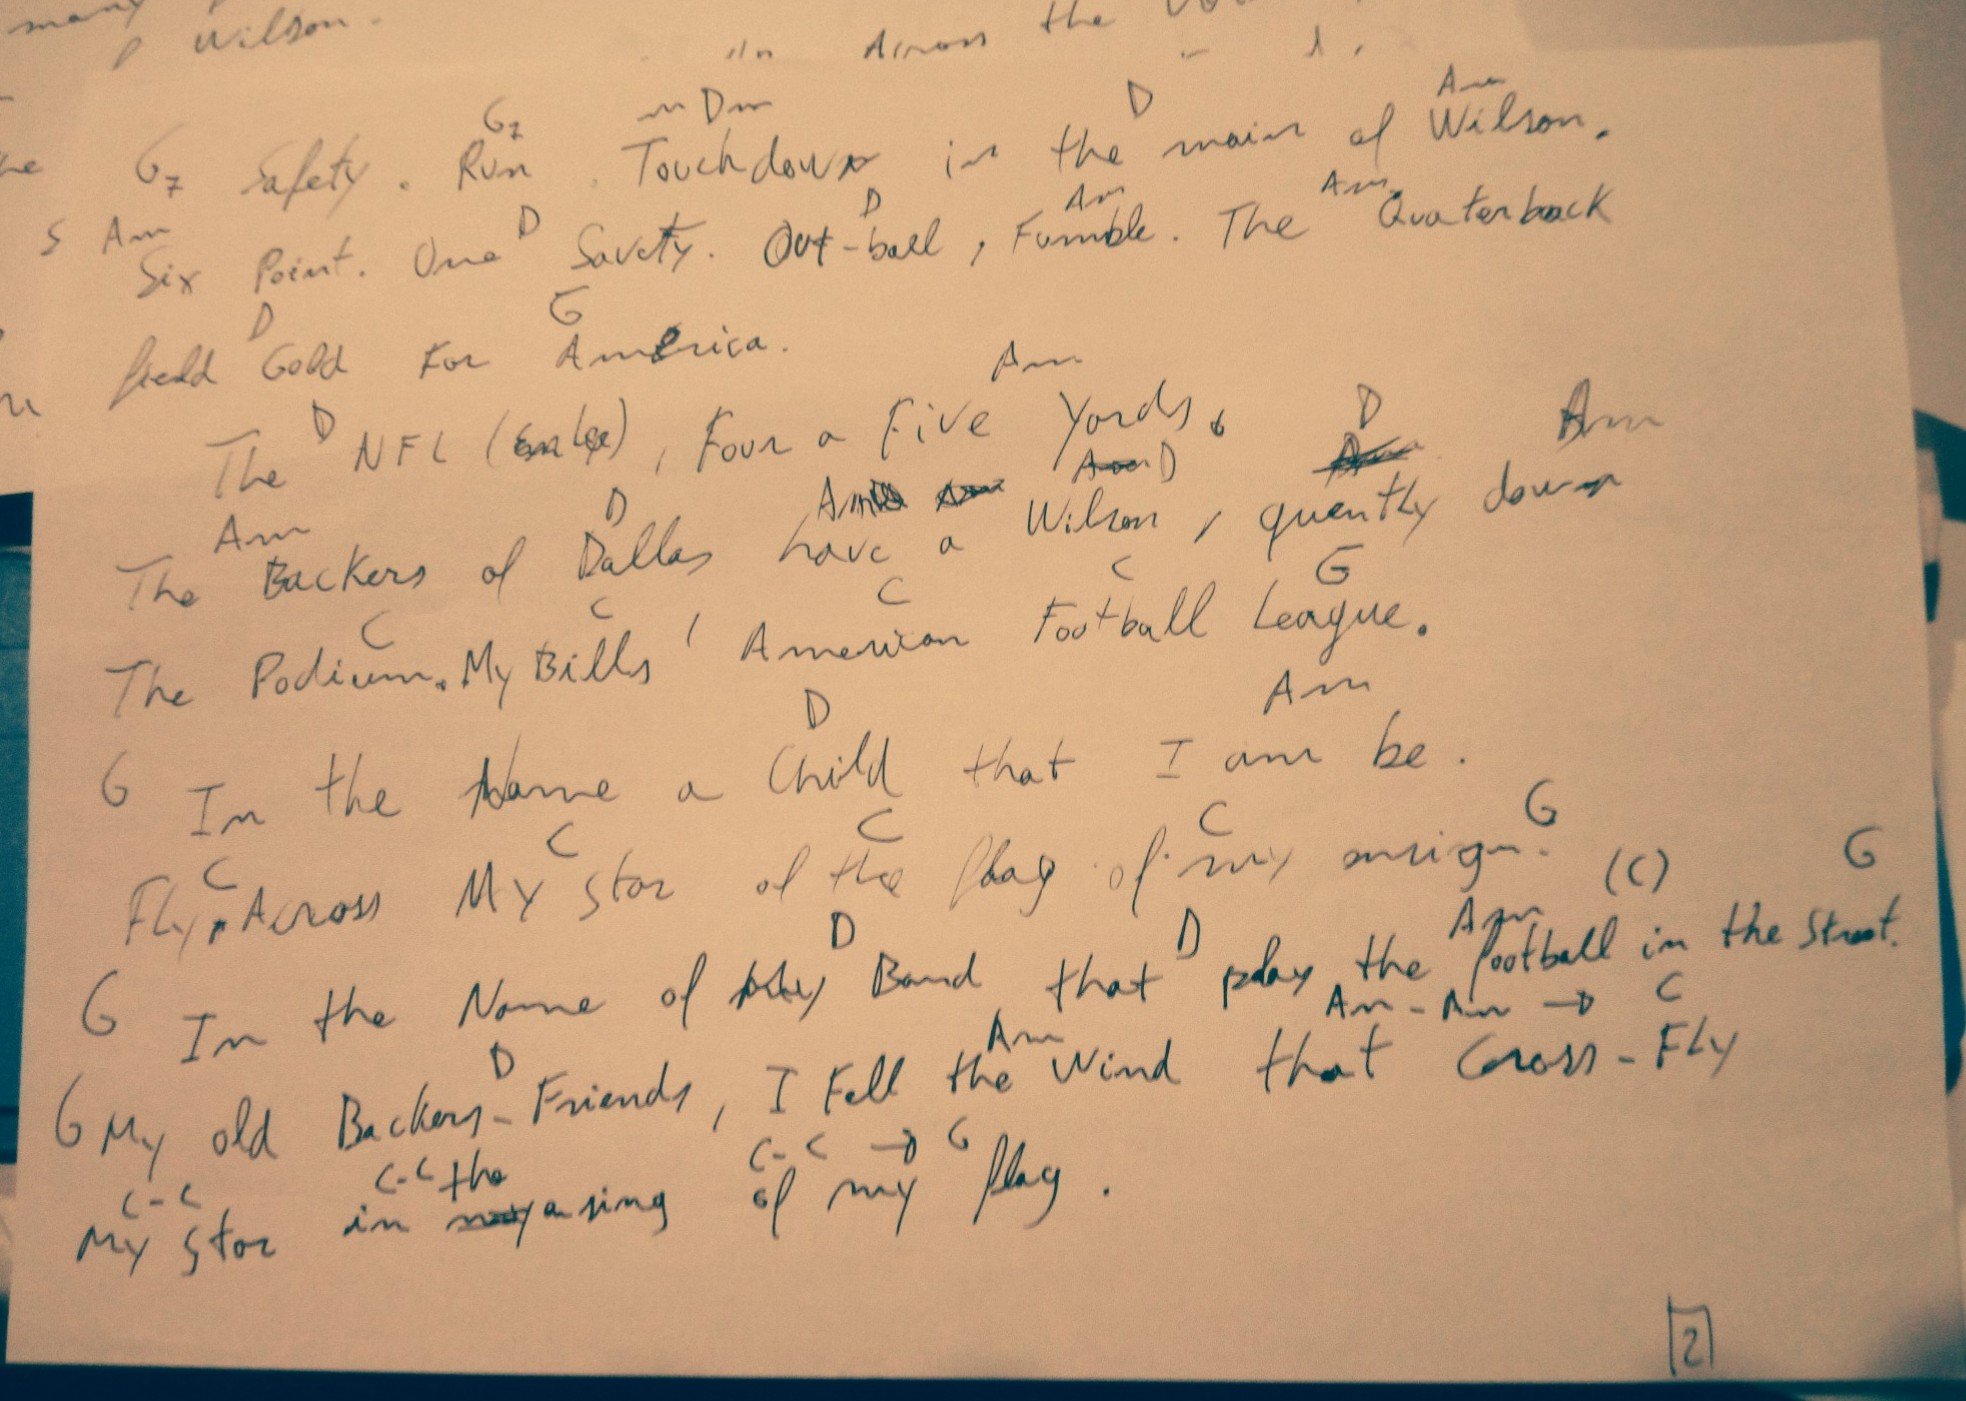 many
Wilson.
Across the
G7 Dm D Am
G7 Safety. Run. Touchdown in the main of Wilson.
Am D D Am Am
Six Point. One Savety. Out-ball, Fumble. The Quaterback
D G
field Gold For America.
D Am
The NFL, Four a Five Yards.
Am D Am D D Am
The Backers of Dallas have a Wilson, quently down
C C C C G
The Podium. My Bills' American Football League.
D Am
G In the Name a Child that I am be.
C C C C G
Fly, Across My Star of the flag of my
D D Am (C) G
G In the Name of My Band that play the football in the Street.
D Am Am-Am → C
G My old Backers-Friends, I Fell the Wind that Cross-Fly
C-C C-C the C-C → G
My Star in asing of my flag.
2